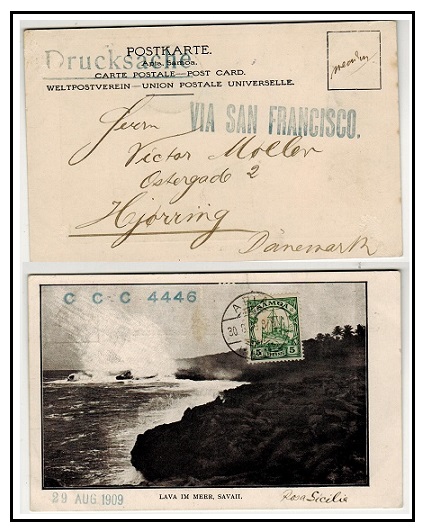 Drucksache
POSTKARTE.
Apia, Samoa.
CARTE POSTALE—POST CARD.
WELTPOSTVEREIN—UNION POSTALE UNIVERSELLE.
VIA SAN FRANCISCO.
Herrn
Victor Møller
Østergade 2
Hjørring
Dänemark
C C C 4446
SAMOA
5 5
30
29 AUG 1909
LAVA IM MEER, SAVAII.
Rosa Sicilia